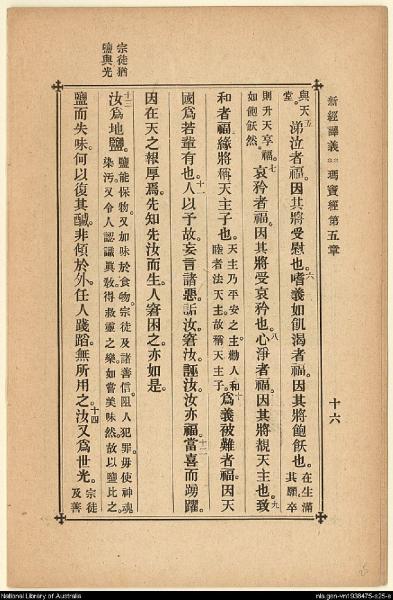 新經譯義 瑪竇經第五章
十六
與天堂。五涕泣者福。因其將受慰也。六嗜義如飢渴者福。因其將飽飫也。在生滿其願。卒
則升天享福。如飽飫然。七哀矜者福。因其將受哀矜也。八心淨者福。因其將覩天主也。九致
和者福。緣將稱天主子也。天主乃平安之主。勸人和睦者法天主。故稱天主子。十爲義被難者福。因天
國爲若輩有也。十一人以予故。妄言諸惡。詬汝窘汝。誣汝。汝亦福。十二當喜而踴躍。
因在天之報厚焉。先知先汝而生。人窘困之亦如是。
宗徒猶鹽與光
十三汝爲地鹽。鹽能保物。又加味於食物。宗徒及諸善信。阻人犯罪。毋使神魂染污。又令人認識眞敎。得救靈之樂。如嘗美味然。故以鹽比之。
鹽而失味。何以復其醎。非傾於外。任人踐蹈。無所用之。十四汝又爲世光。宗徒及善
National Library of Australia